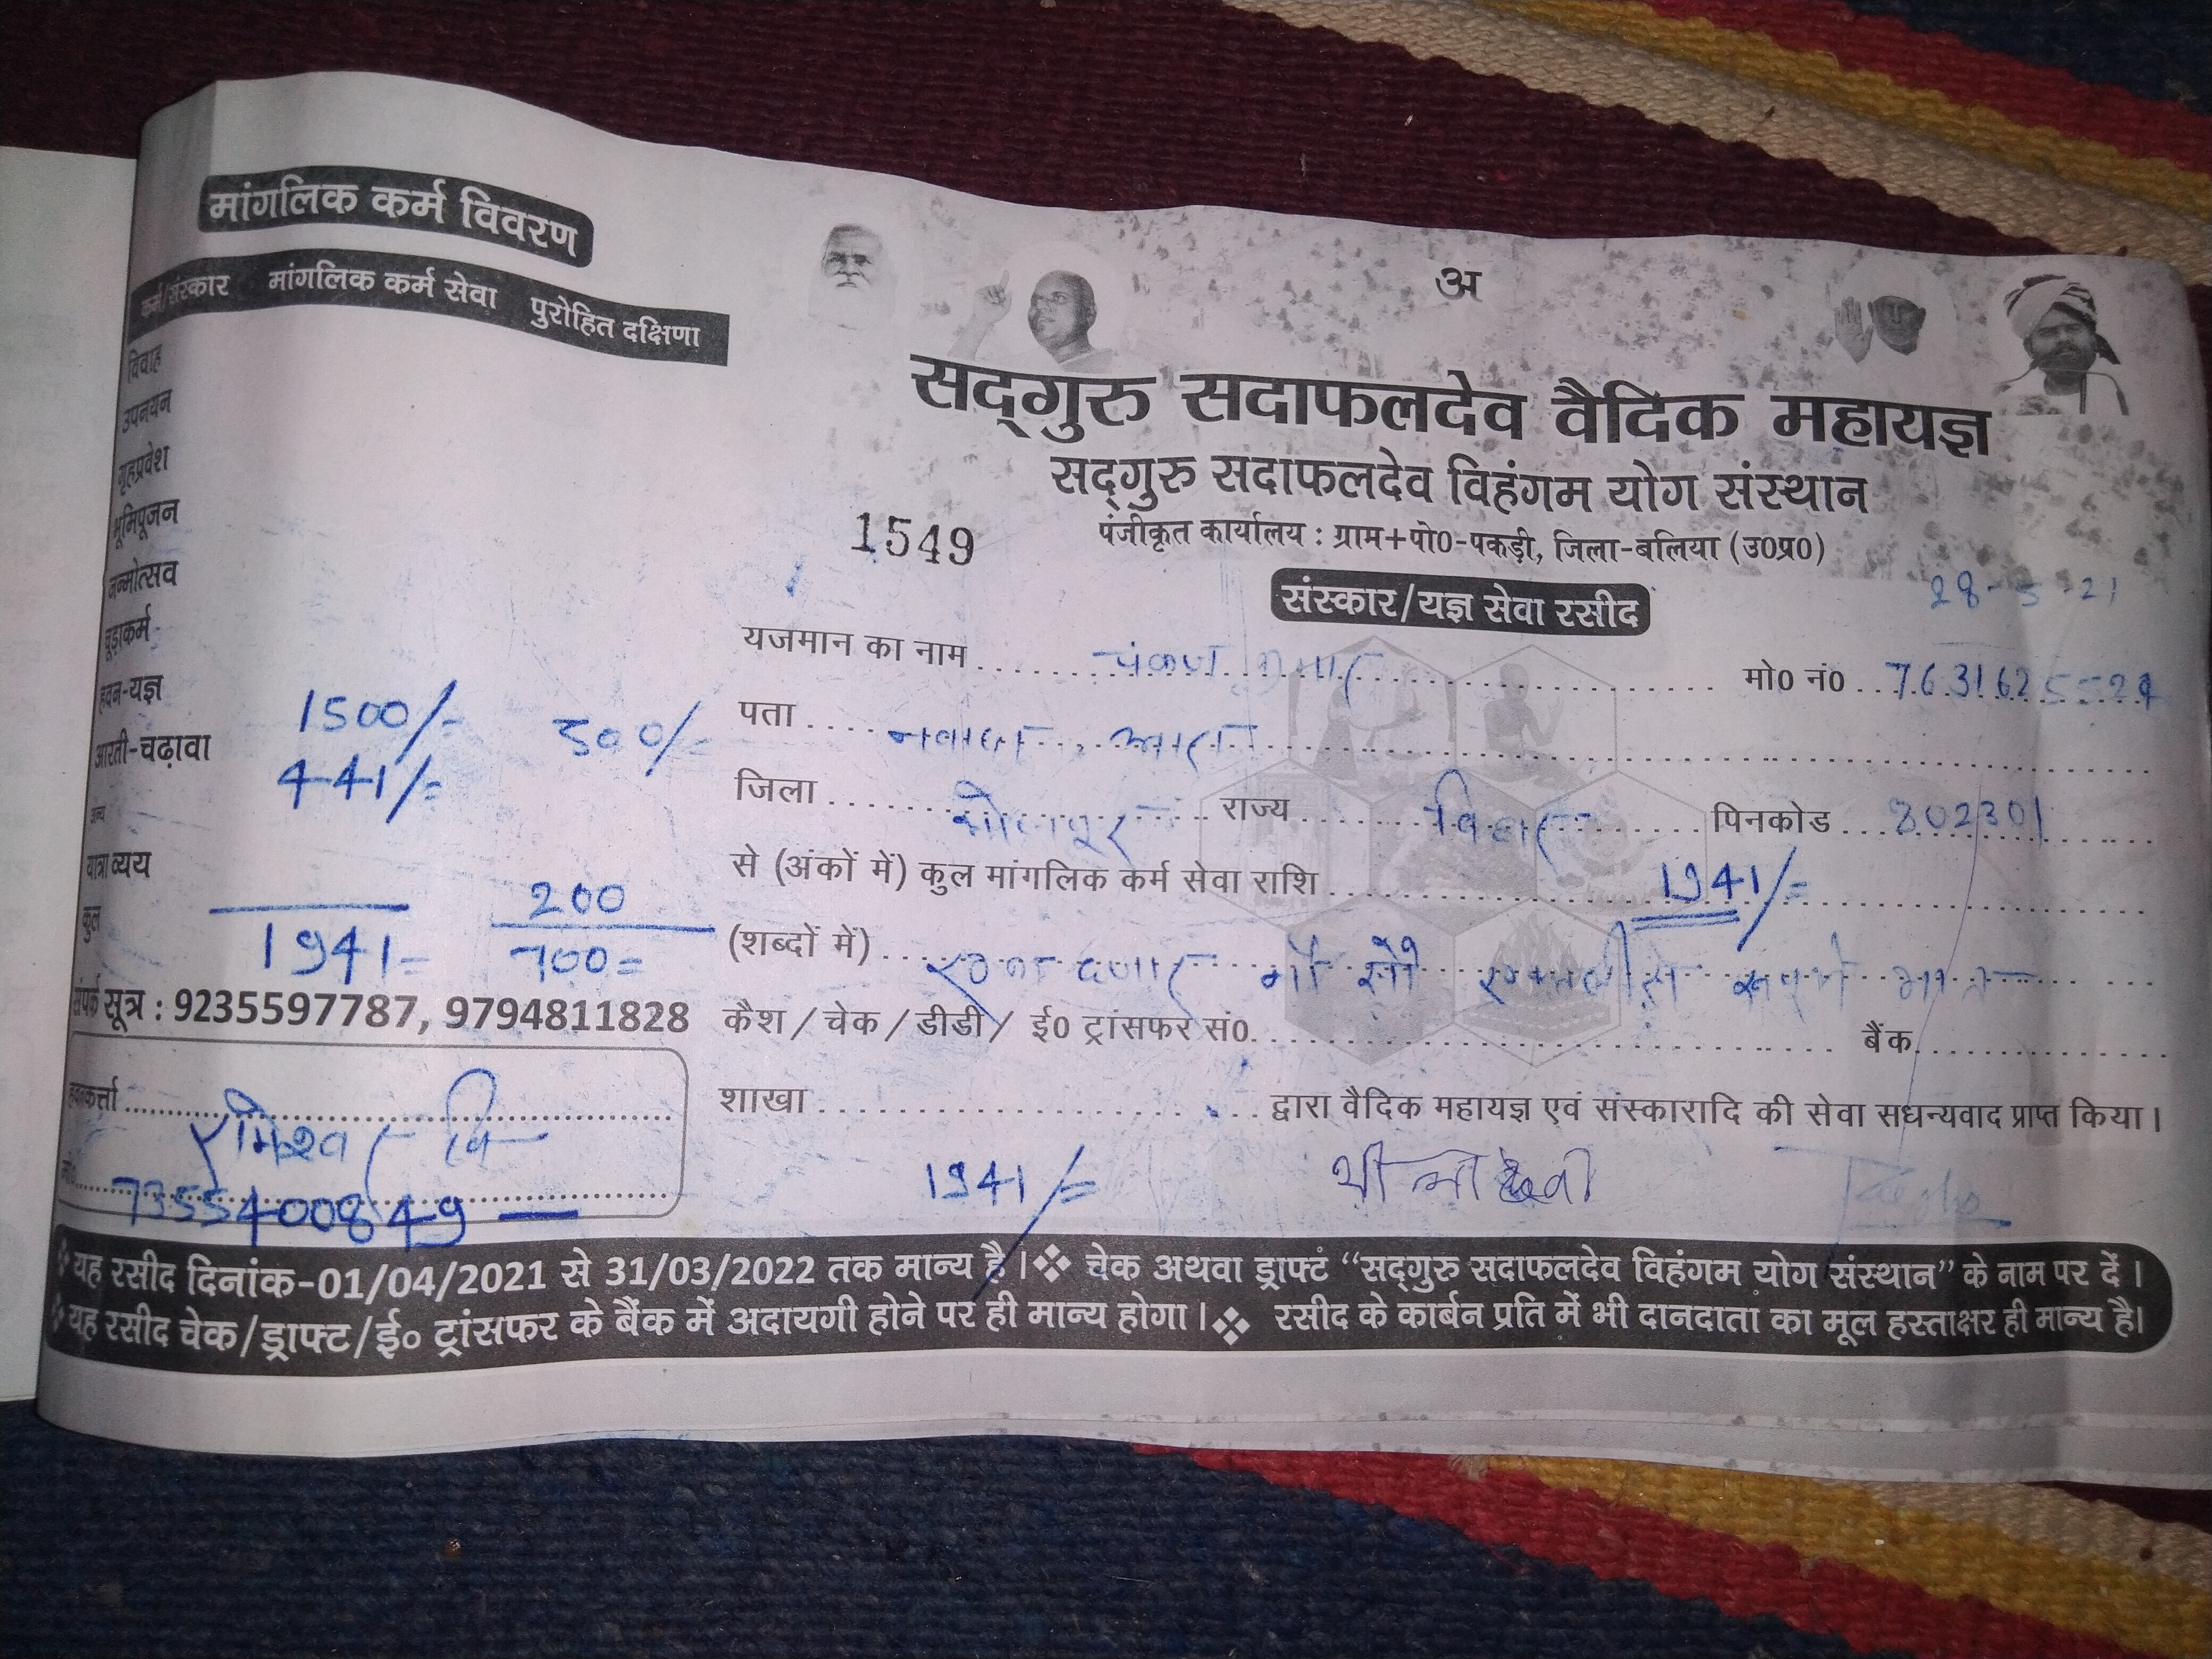 मांगलिक कर्म विवरण
कर्म/संस्कार मांगलिक कर्म सेवा पुरोहित दक्षिणा
विवाह
उपनयन
गृहप्रवेश
भूमिपूजन
जन्मोत्सव
चूड़ाकर्म
हवन-यज्ञ 1500/- 500/-
आरती-चढ़ावा 441/=
अन्य
यात्रा व्यय 200
कुल 1941= 700=
संपर्क सूत्र : 9235597787, 9794811828
हवनकर्त्ता
मो० 7355400849
अ
सद्गुरु सदाफलदेव वैदिक महायज्ञ
सद्गुरु सदाफलदेव विहंगम योग संस्थान
1549 पंजीकृत कार्यालय : ग्राम+पो0-पकड़ी, जिला-बलिया (उ0प्र0)
संस्कार/यज्ञ सेवा रसीद 28-5-21
यजमान का नाम पंकज कुमार मो0 नं0 7631625524
पता नवादा, आरा
जिला भोजपुर राज्य बिहार पिनकोड 802301
से (अंकों में) कुल मांगलिक कर्म सेवा राशि 1941/=
(शब्दों में) एक हजार नौ सौ एकतालीस रूपये मात्र
कैश / चेक / डीडी / ई0 ट्रांसफर सं0 बैंक
शाखा द्वारा वैदिक महायज्ञ एवं संस्कारादि की सेवा सधन्यवाद प्राप्त किया।
1941/=
❖ यह रसीद दिनांक-01/04/2021 से 31/03/2022 तक मान्य है। ❖ चेक अथवा ड्राफ्टं “सद्गुरु सदाफलदेव विहंगम योग संस्थान” के नाम पर दें।
❖ यह रसीद चेक/ड्राफ्ट/ई० ट्रांसफर के बैंक में अदायगी होने पर ही मान्य होगा। ❖ रसीद के कार्बन प्रति में भी दानदाता का मूल हस्ताक्षर ही मान्य है।